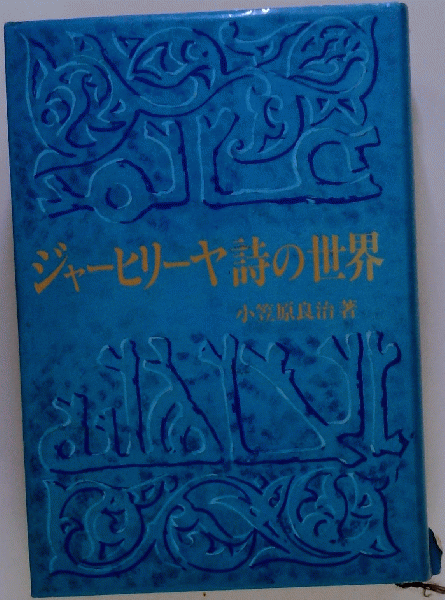 ジャーヒリーヤ詩の世界
小笠原良治著